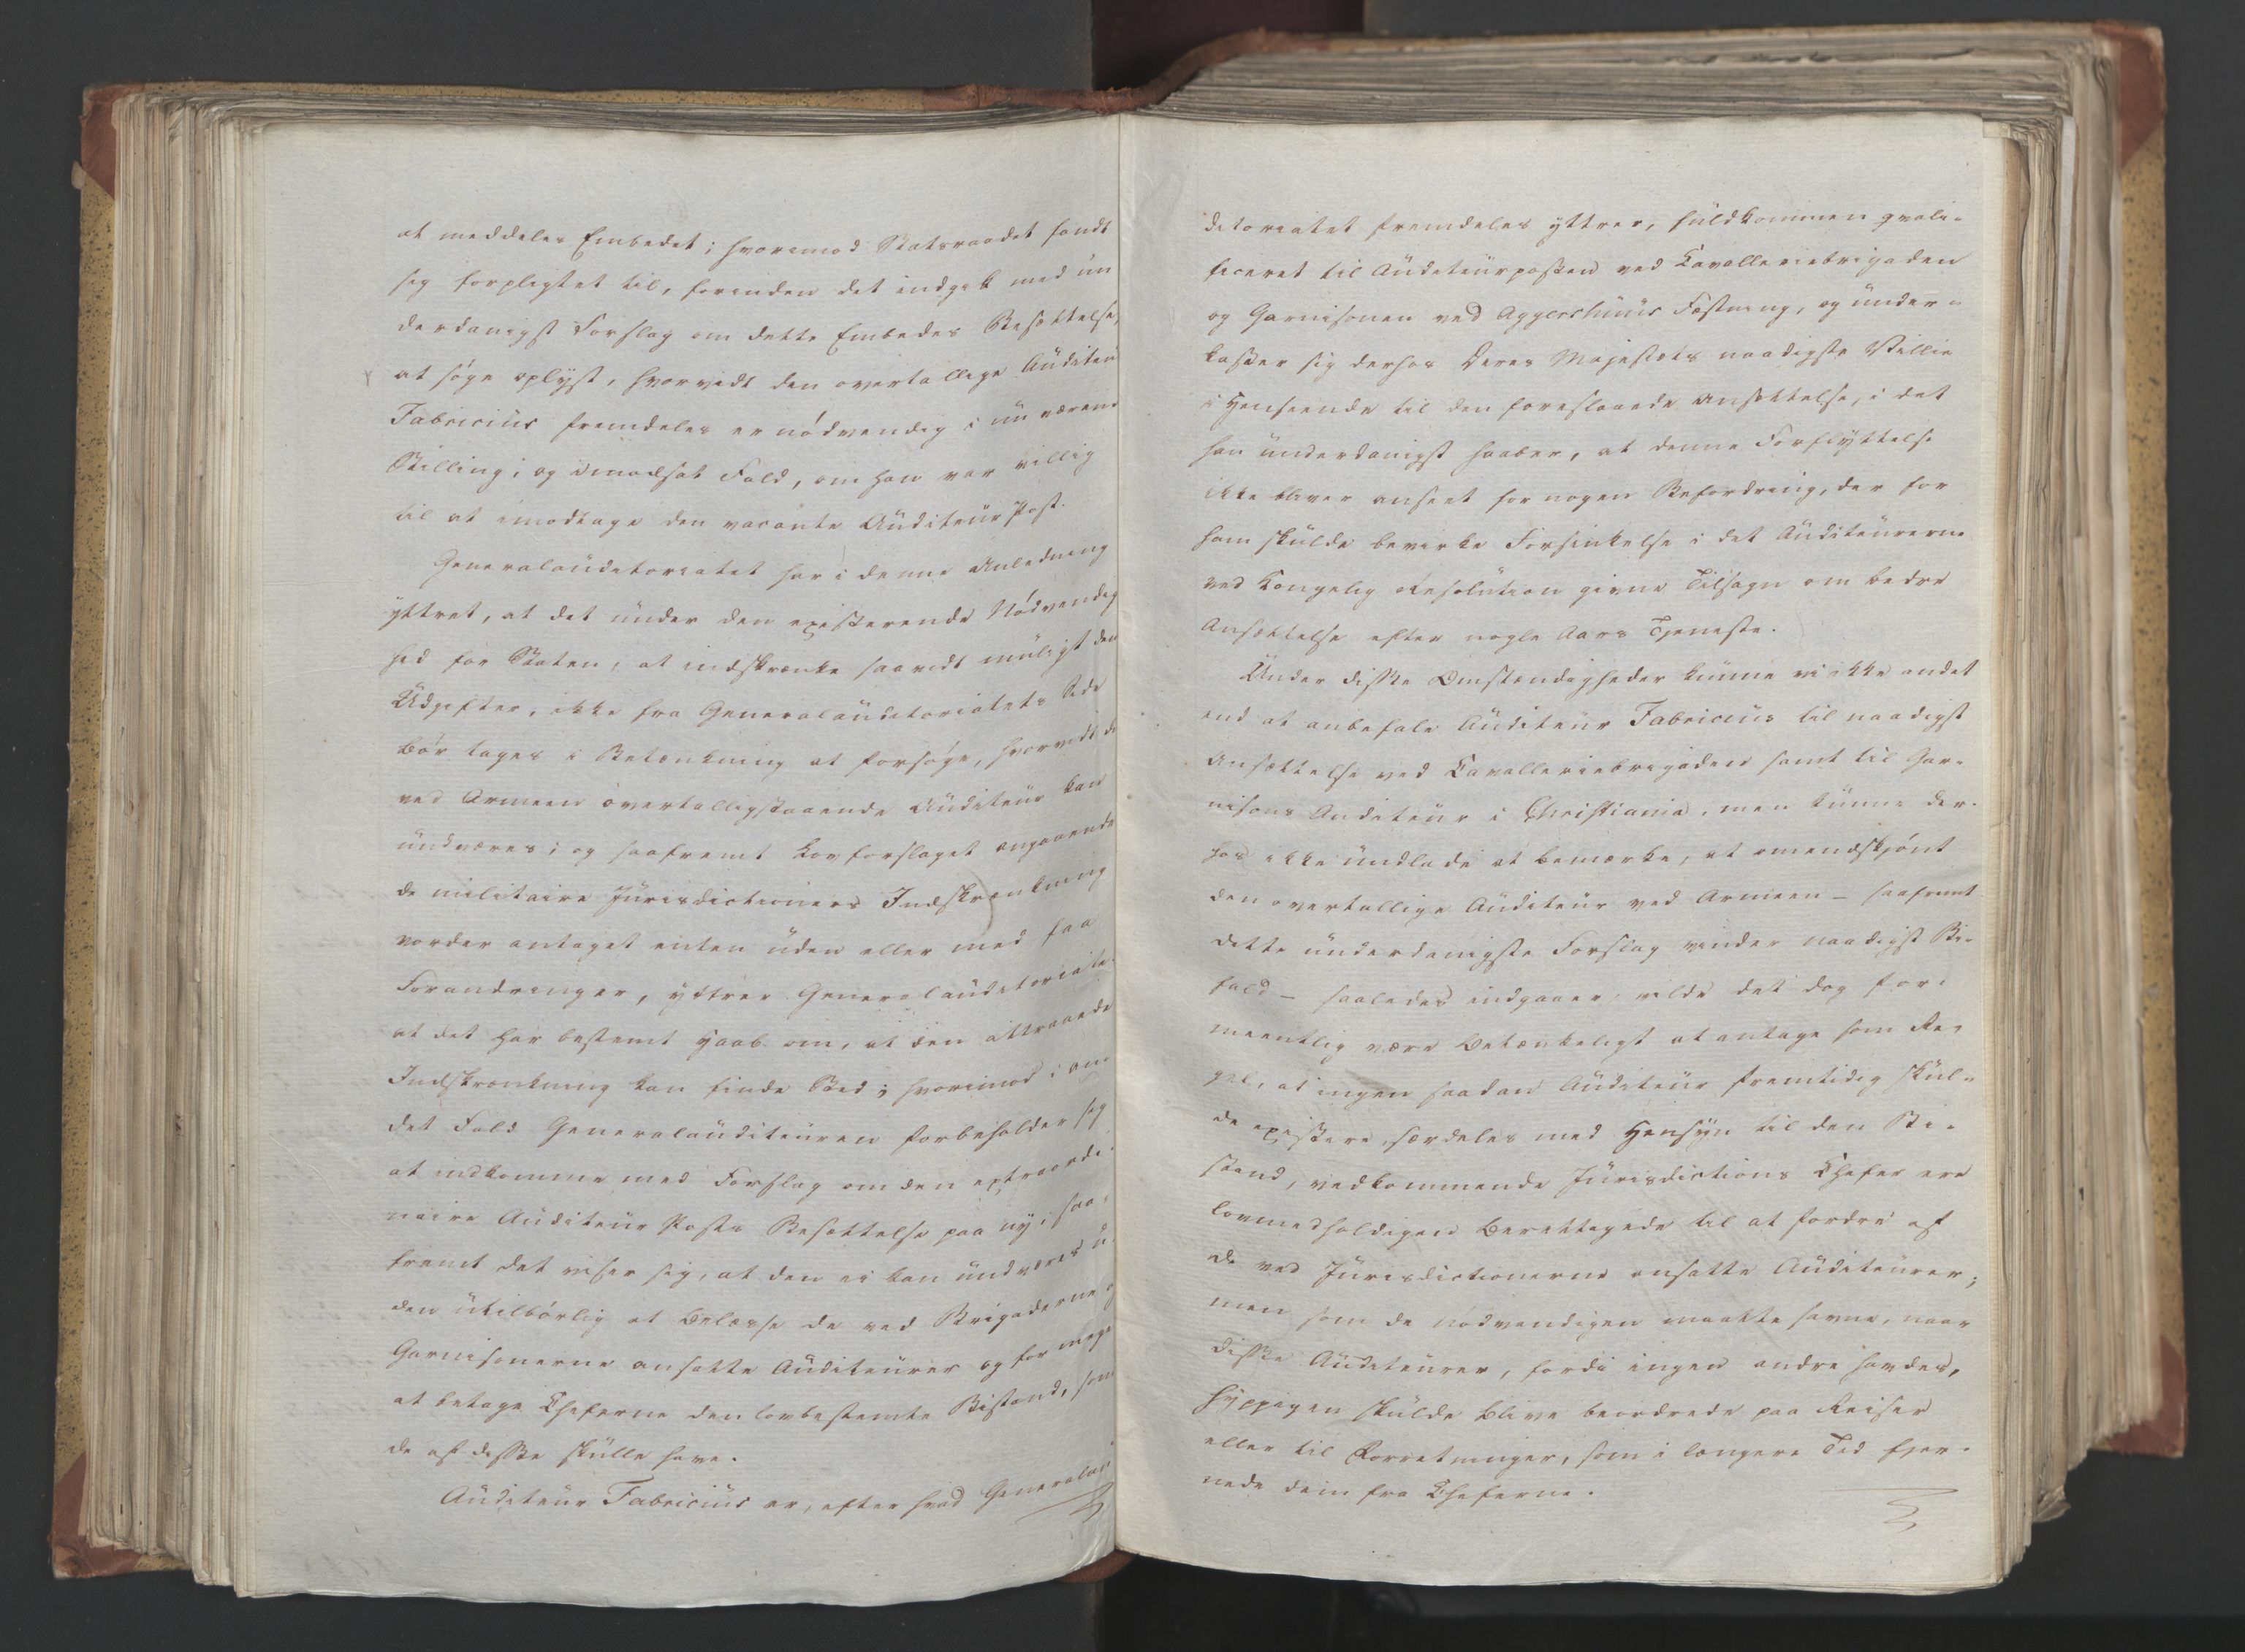 at meddeles Embedet; hvorimod Statsraadet fandt
sig forpligtet til, forinden det indgik med un
derdanigst Forslag om dette Embedes Besættelse,
at søge oplyst, hvorvidt den overtallige Auditeur
Fabricius fremdeles er nødvendig i nu værend
Stilling; og i modsat Fald, om han var villig
til at imodtage den vacante Auditeur Post.
Generalauditoriatet har i denne Anledning
yttret, at det under den existerende Nødvendig
hed for Staten, at indskrænke saavidt muligt den
Udgifter, ikke fra Generalauditoriatets Side
bør tages i Betænkning at forsøge, hvorvidt de
ved Armeen overtalligstaaende Auditeur kan
undværes; og saafremt Lovforslaget angaaende
de militaire Jurisdictioners Indskrænkning
vorder antaget enten uden eller med faa
Forandringer, yttrer Generalauditoriate
at det har bestemt Haab om, at den attraaede
Indskrænkning kan finde Sted; hvorimod i an
det Fald Generalauditeuren forbeholder sig
at indkomme med Forslag om den extraordi-
naire Auditeur Posts Besættelse paa ny, saa-
fremt det viser sig, at den ei kan undværes u-
den utilbørlig at belæsse de ved Brigaderne og
Garnisonerne ansatte Auditeurer og for mege
at betage Cheferne den lovbestemte Bistand, som
de af disse skulle have.
Auditeur Fabricius er, efter hvad Generalau
ditoriatet fremdeles yttrer, fuldkommen qvali-
ficeret til Auditeurposten ved Cavalleriebrigaden
og Garnisonen ved Aggershuus Fæstning, og under-
kaster sig derhos Deres Majestæts naadigste Villie
i Henseende til den foreslaaede Ansættelse, i det
han underdanigst haaber, at denne Forflyttelse
ikke bliver anseet for nogen Befordring, der for
ham skulde bevirke Forsinkelse i det Auditeurerne
ved Kongelig Resolution givne Tilsagn om bedre
Ansættelse efter nogle Aars Tjeneste.
Under disse Omstændigheder kunne vi ikke andet
end at anbefale Auditeur Fabricius til naadigst
Ansættelse ved Cavalleriebrigaden samt til Gar-
nisons Auditeur i Christiania, men kunne der-
hos ikke undlade at bemærke, at omendskjønt
den overtallige Auditeur ved Armeen – saafremt
dette underdanigste Forslag vinder naadigst Bi-
fald – saaledes indgaaer, vilde det dog for-
meentlig være betænkeligt at antage som Re-
gel, at ingen saadan Auditeur fremtidig skul-
de existere, særdeles med Hensyn til den Bi-
stand, vedkommende Jurisdictions Chefer ere
lovmedholdigen berettigede til at fordre af
de ved Jurisdictionerne ansatte Auditeurer;
men som de nødvendigen maatte savne, naar
disse Auditeurer, fordi ingen andre havdes,
hyppigen skulde blive beordrede paa Reiser
eller til Forretninger, som i længere Tid fjer-
nede dem fra Cheferne.